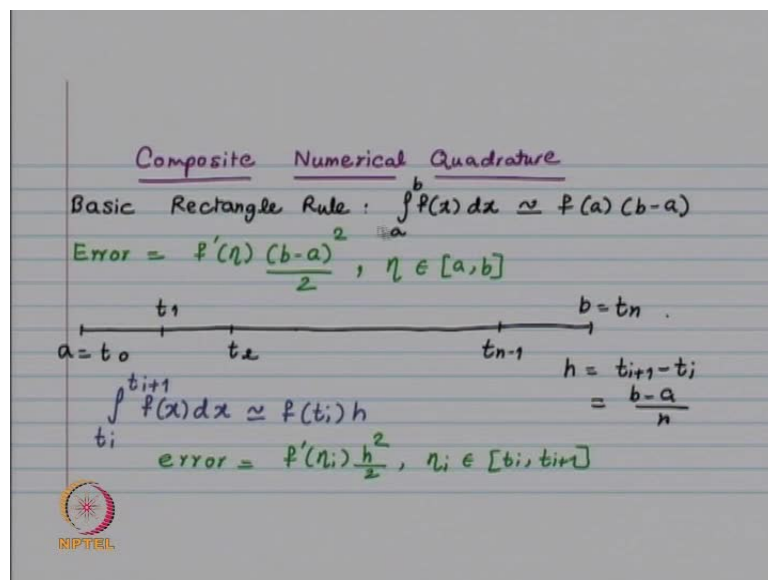 Composite Numerical Quadrature
Basic Rectangle Rule : ∫_a^b f(x) dx ≃ f(a) (b-a)
Error = f'(η) (b-a)^2/2 , η ∈ [a,b]
t1 b = tn .
a = t0 t2 tn-1
h = ti+1 - ti
∫_ti^ti+1 f(x) dx ≃ f(ti) h
= b-a/n
error = f'(ηi) h^2/2 , ηi ∈ [ti, ti+1]
NPTEL